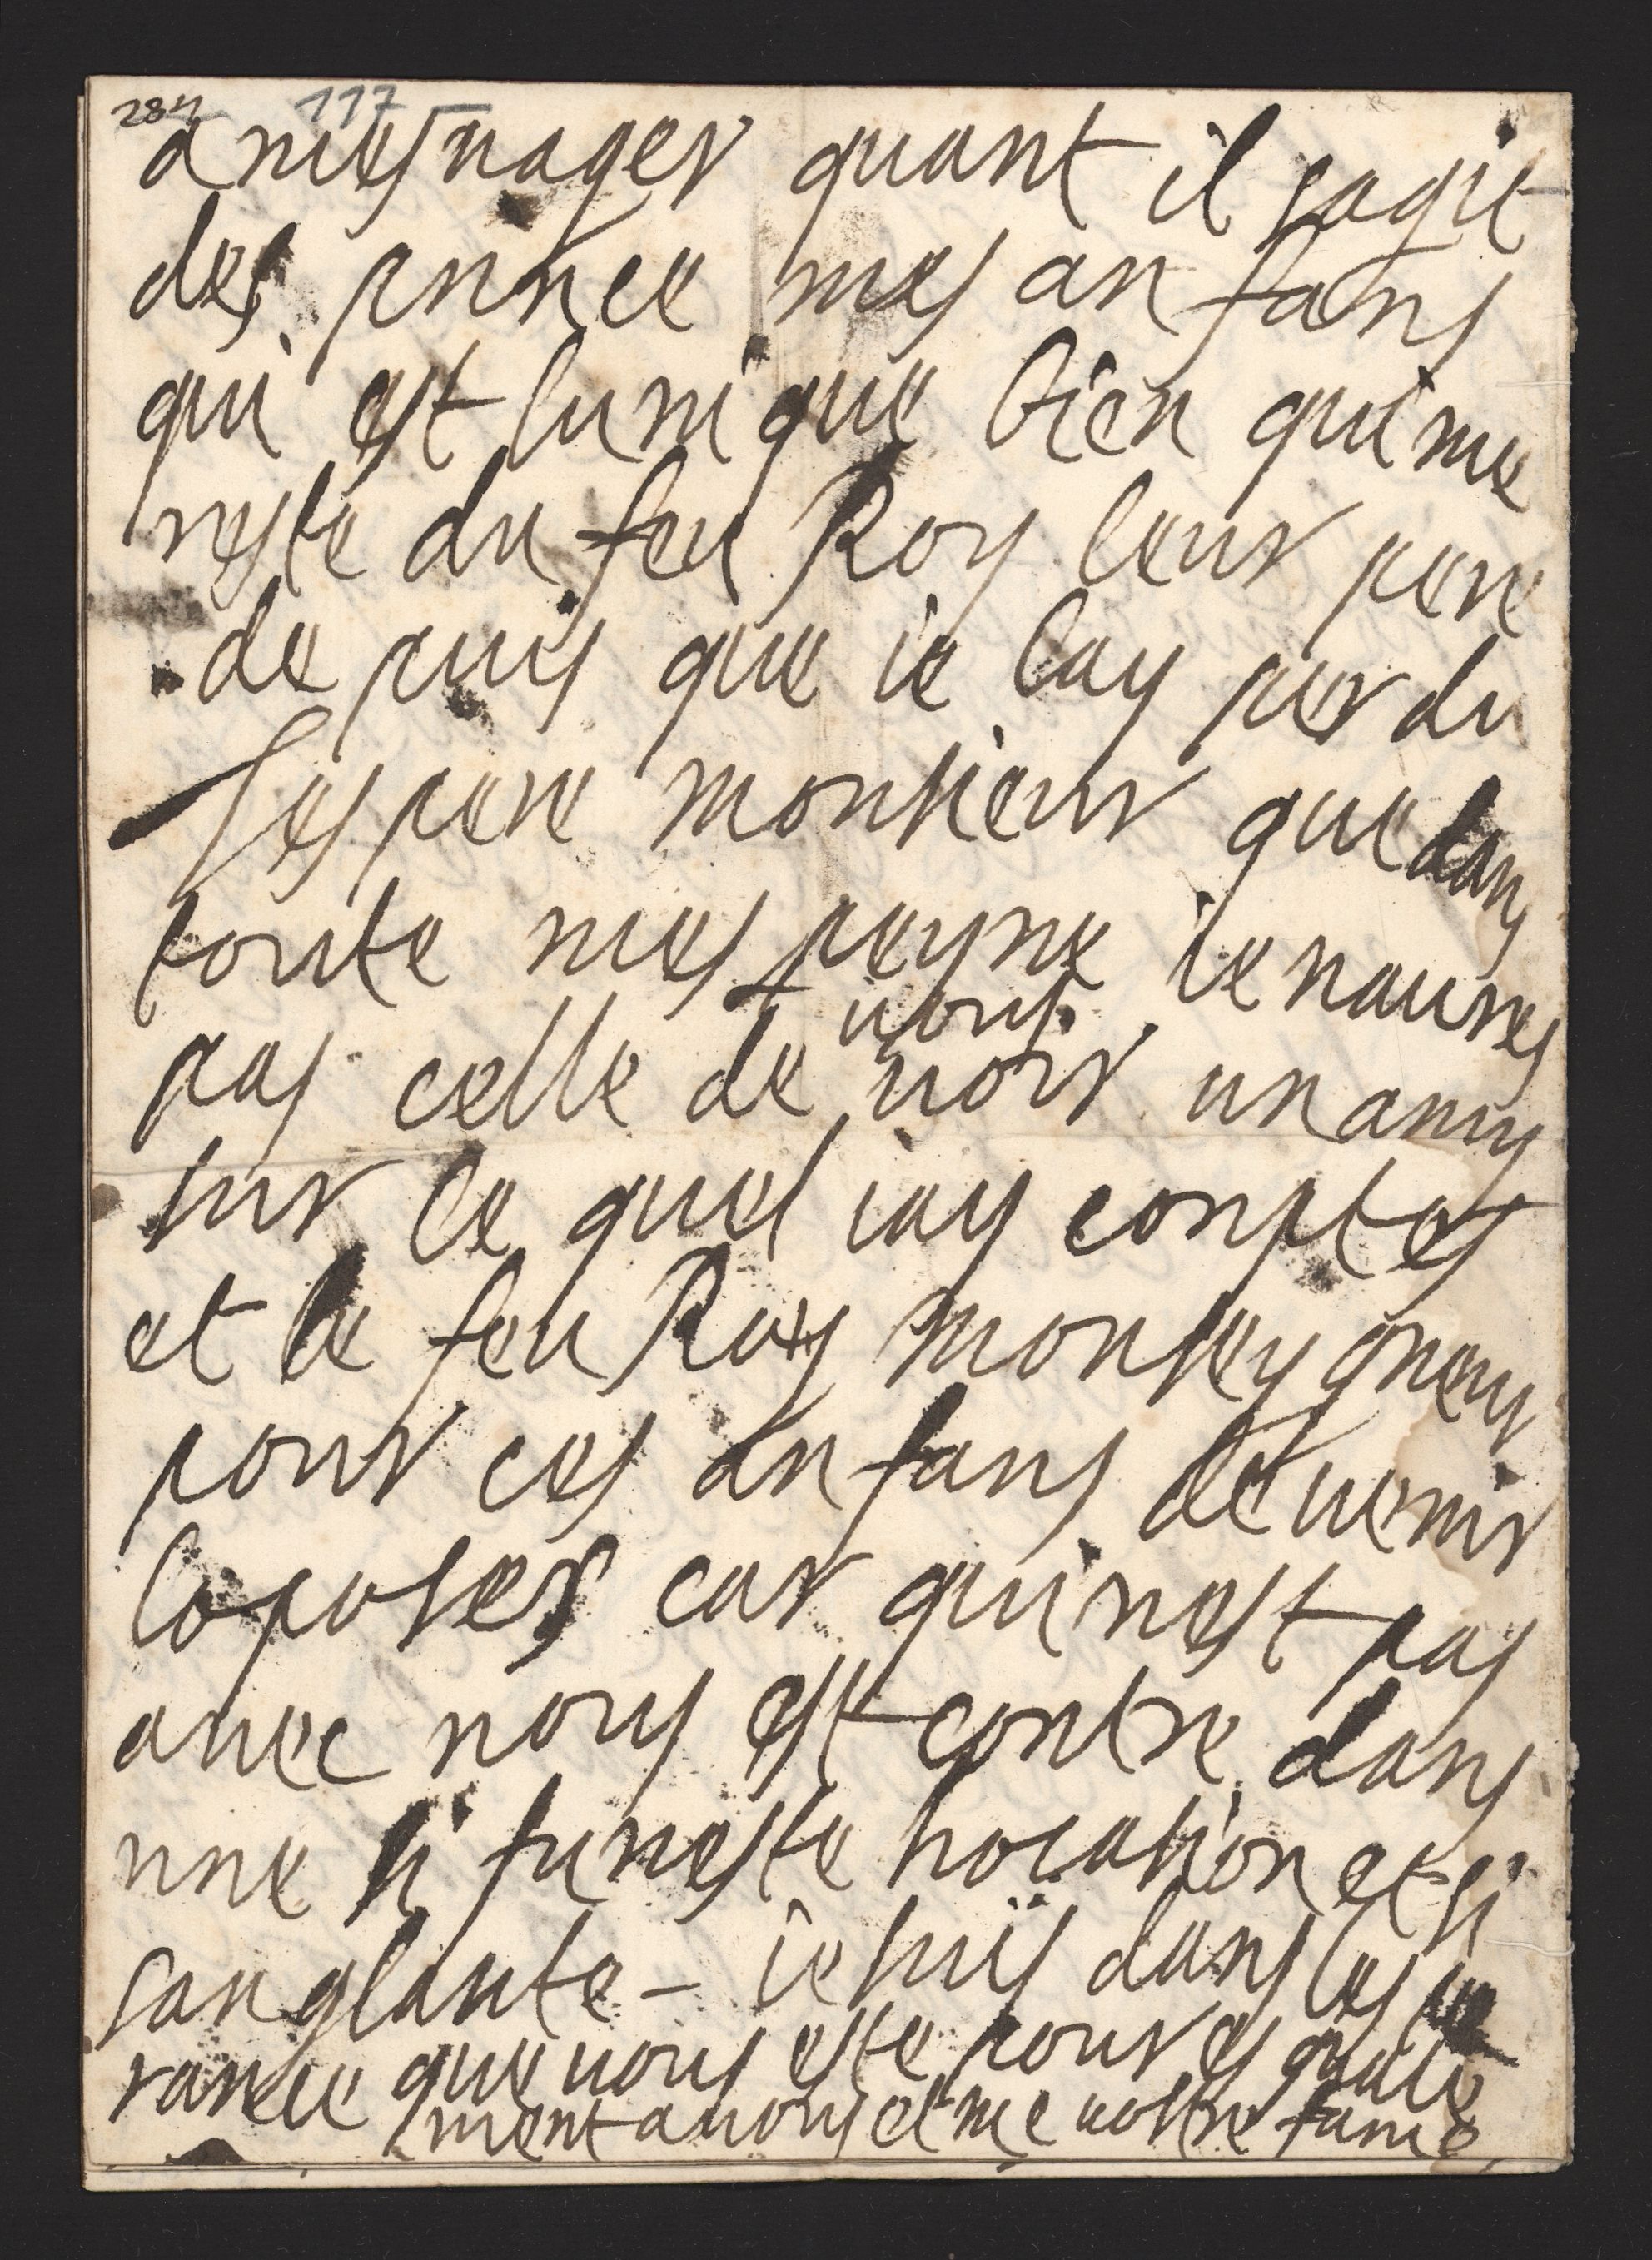 284 117
a mesnager quant il sagit
des prince mes an fans
qui est lunique bien qui me
reste du feu Roy leur pere
de puis que ie lay per du
Jespere monsieur que dans
toute mes peyne ie naures
pas celle de vous voir un amy
sur le quel iay comptes
et le feu Roy monseygneur
pour ces an fans de venir
loposer car qui nest pas
avec nous est contre dans
une si funeste hocation et si
sanglante – ie suis dans les pe
rance que vous este pour es gale
ment a vous et me vostre fame